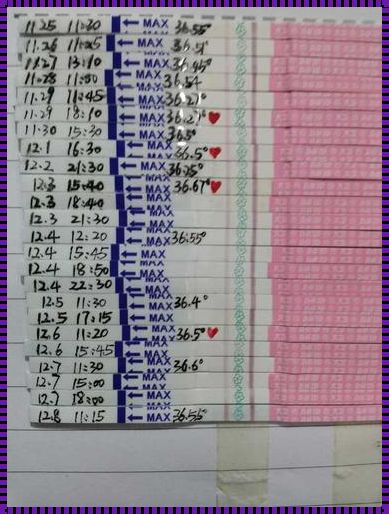 11.25 11:30 ← MAX 36.55°
11.26 11:25 ← MAX 36.51°
11.27 13:10 ← MAX 36.45°
11.28 11:50 ← MAX 36.54
11.29 11:45 ← MAX 36.27°
11.29 18:10 ← MAX 36.27° ♥
11.30 15:30 ← MAX 36.5°
12.1 16:30 ← MAX 36.5° ♥
12.2 21:30 ← MAX 36.25°
12.3 15:40 ← MAX 36.67° ♥
12.3 18:40 ← MAX
12.3 21:30 ← MAX
12.4 12:20 ← MAX 36.55°
12.4 15:45 ← MAX
12.4 18:50 ← MAX
12.4 22:30 ← MAX
12.5 11:30 ← MAX 36.4°
12.5 17:15 ← MAX
12.6 11:20 ← MAX 36.5° ♥
12.6 15:45 ← MAX
12.7 11:30 ← MAX 36.6°
12.7 15:00 ← MAX
12.7 18:00 ← MAX
12.8 11:15 ← MAX 36.56°